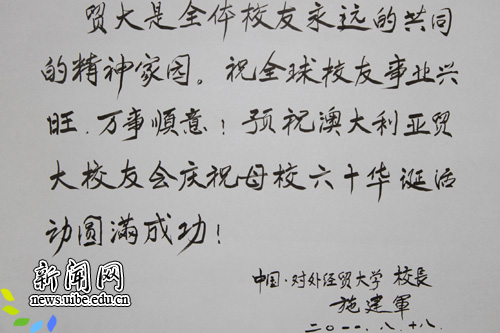 贸大是全体校友永远的共同
的精神家园。祝全球校友事业兴
旺.万事順意!预祝澳大利亚贸
大校友会庆祝母校六十华诞活
动圆滿成功!
中国·对外经贸大学 校長
施建軍
二〇一一.八.十八.
新闻网
news.uibe.edu.cn